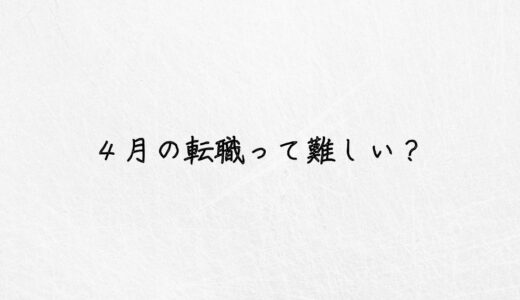 ４月の転職って難しい？